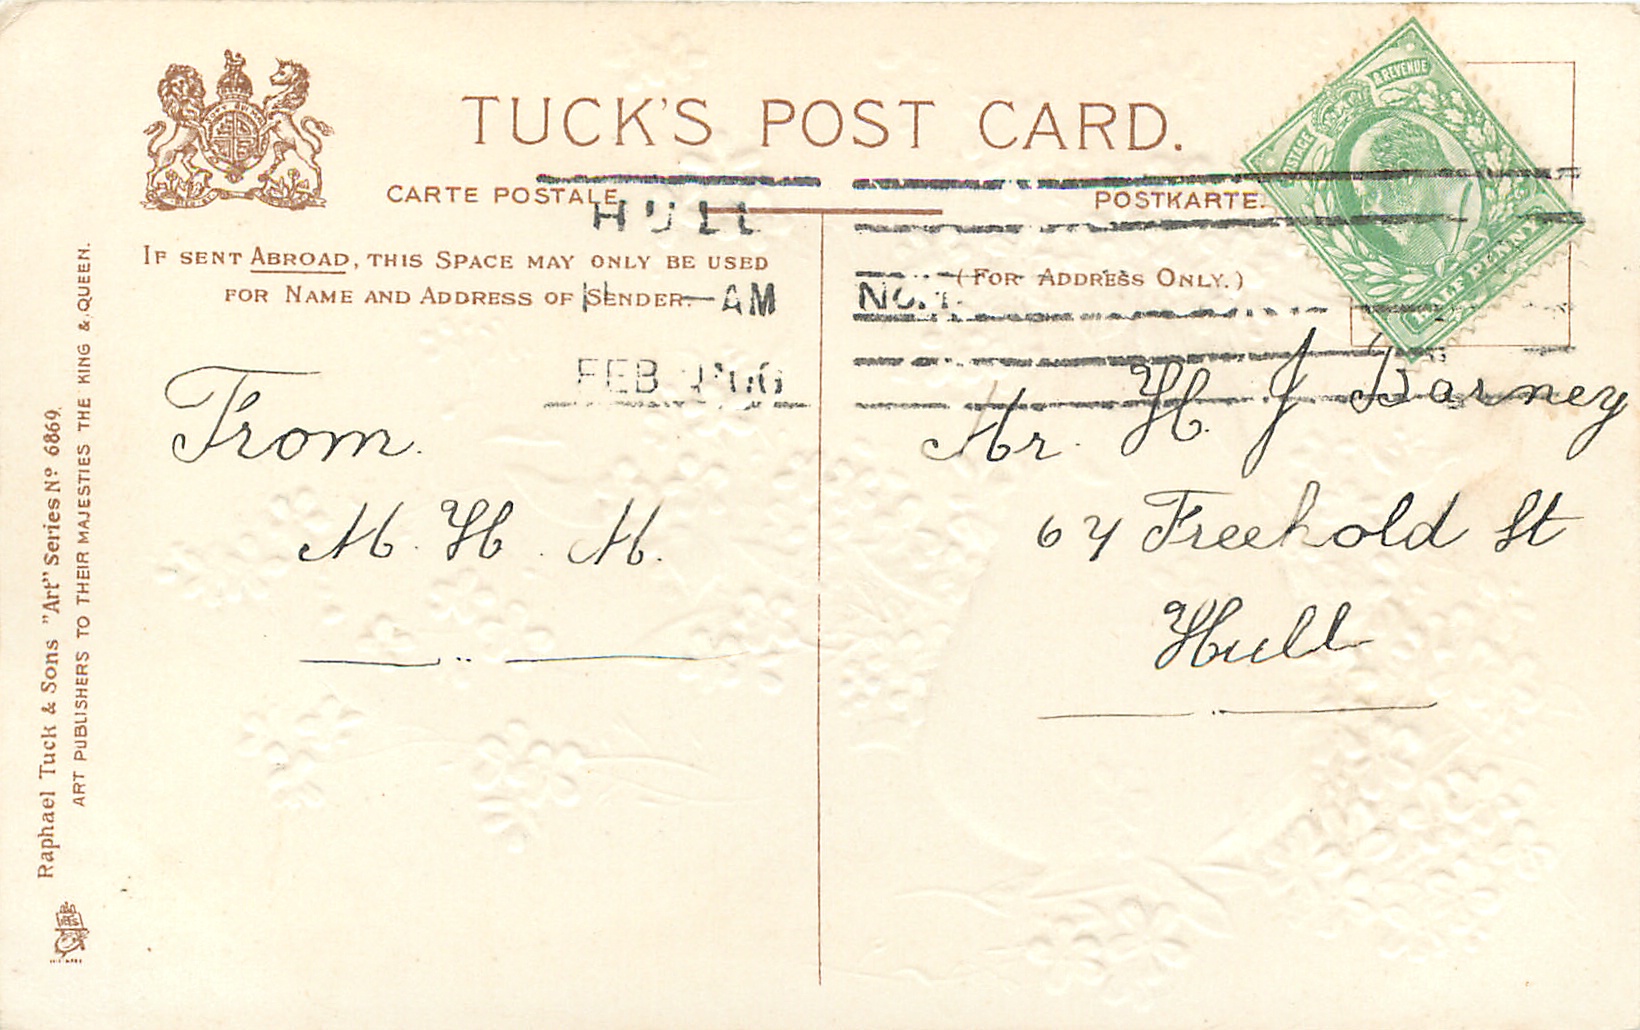 TUCK'S POST CARD.
CARTE POSTALE
POSTKARTE.
POSTAGE & REVENUE
HALF PENNY
HULL
IF SENT ABROAD, THIS SPACE MAY ONLY BE USED
FOR NAME AND ADDRESS OF SENDER.
AM
(FOR ADDRESS ONLY.)
FEB
From
M. H. M.
Mr. H. J Barney
64 Freehold St
Hull
Raphael Tuck & Sons "Art" Series Nº 6869.
ART PUBLISHERS TO THEIR MAJESTIES THE KING & QUEEN.